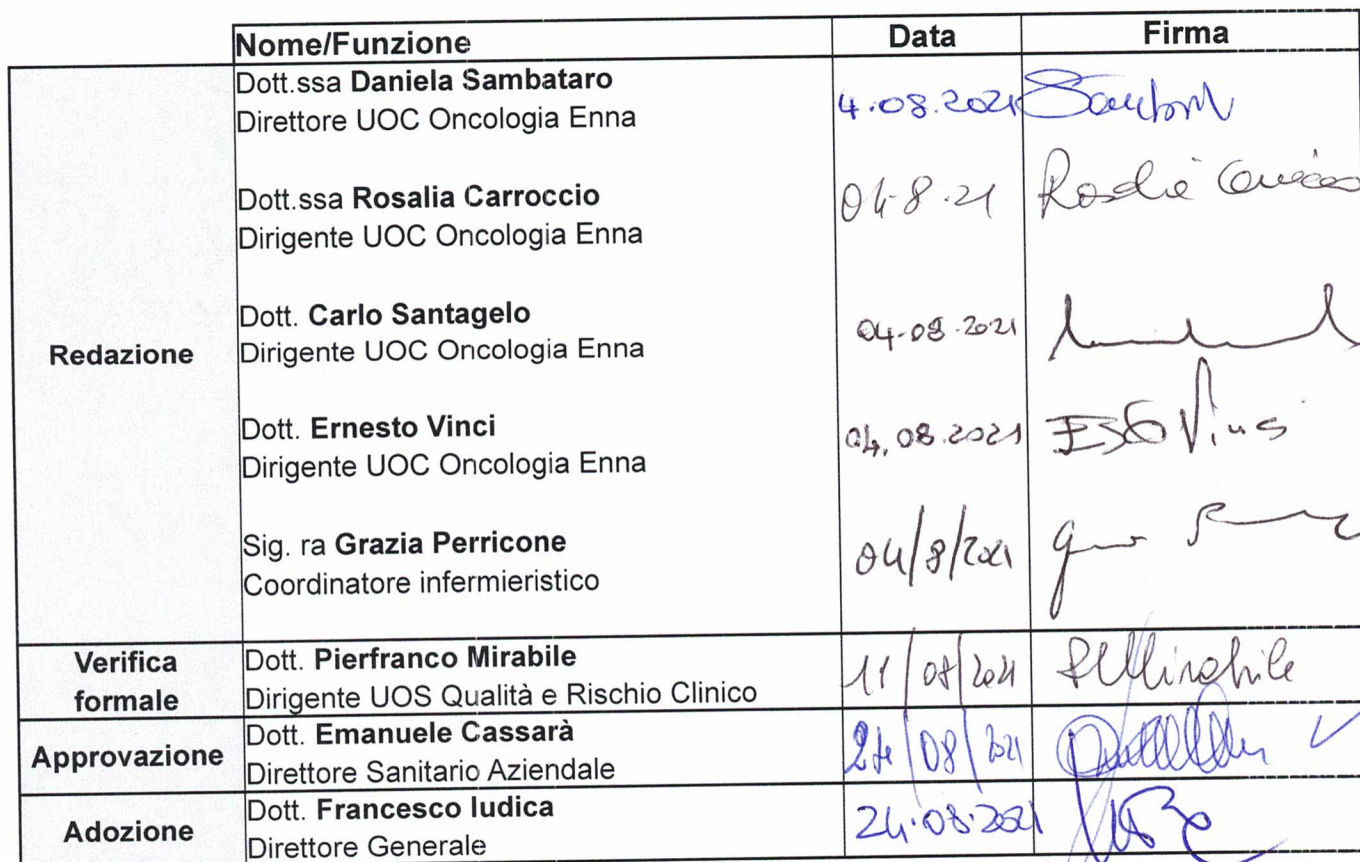 Nome/Funzione Data Firma
Redazione
Dott.ssa Daniela Sambataro
Direttore UOC Oncologia Enna
4.08.2021
Dott.ssa Rosalia Carroccio
Dirigente UOC Oncologia Enna
04-8-21
Dott. Carlo Santagelo
Dirigente UOC Oncologia Enna
04-08-2021
Dott. Ernesto Vinci
Dirigente UOC Oncologia Enna
04.08.2021
Vinci
Sig. ra Grazia Perricone
Coordinatore infermieristico
04/8/2021
Verifica
formale
Dott. Pierfranco Mirabile
Dirigente UOS Qualità e Rischio Clinico
11/08/2021
PMirabile
Approvazione
Dott. Emanuele Cassarà
Direttore Sanitario Aziendale
24/08/2021
Adozione
Dott. Francesco Iudica
Direttore Generale
24.08.2021